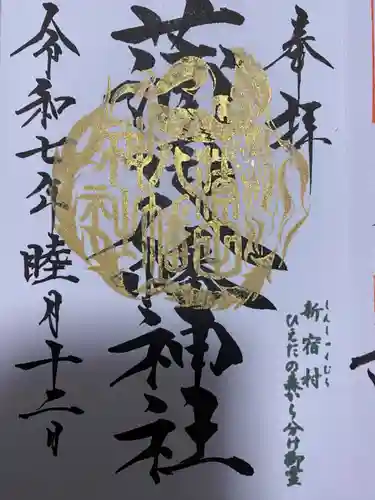 奉拝
しんしゅくむら
新宿村
ひえだの森から分け御霊
蒲田八幡神社
令和七年 睦月十二日